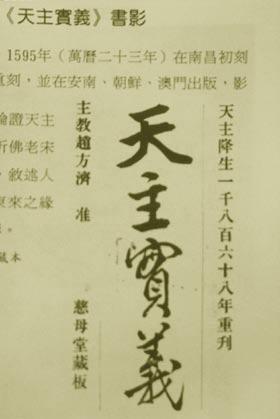 《天主實義》書影
1595年(萬曆二十三年)在南昌初刻
重刻,並在安南、朝鮮、澳門出版,影
論證天主
斥佛老宋
,敘述人
東來之緣
。
藏本
天主降生一千八百六十八年重刊
天主實義
主教趙方濟 准
慈母堂藏板